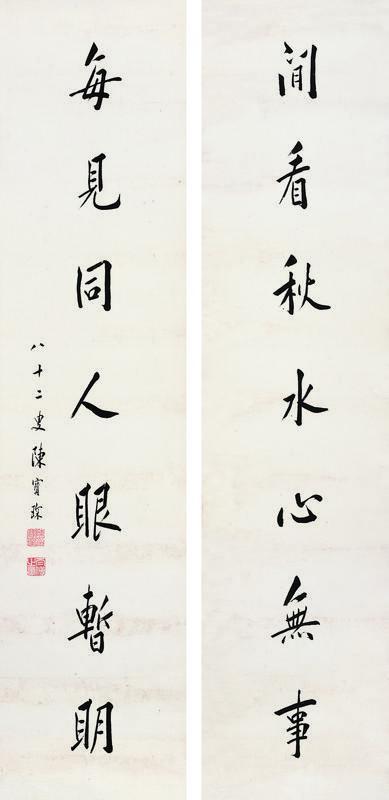 閒看秋水心無事
每見同人眼暫明
八十二叟陳寶琛